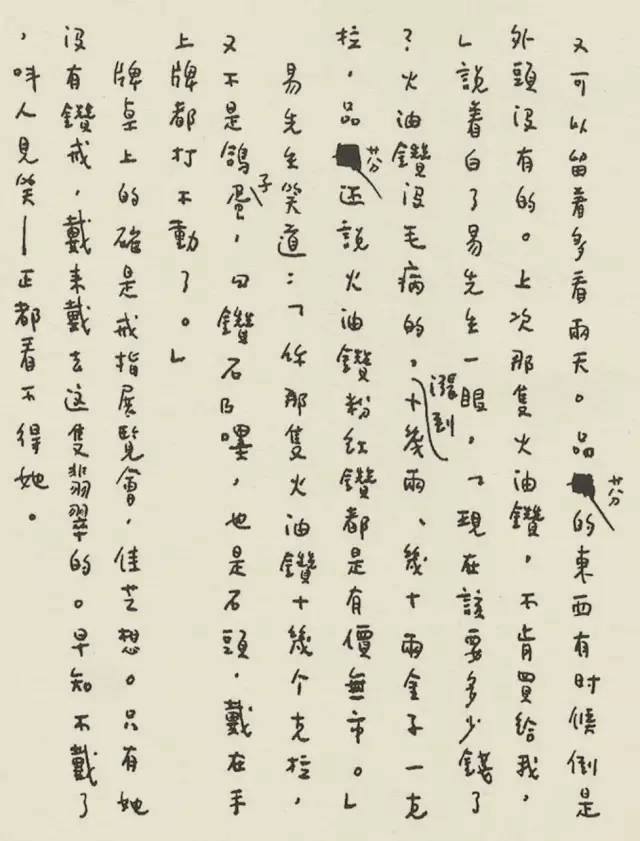 又可以留着多看兩天。品芬的東西有时候倒是
外頭沒有的。上次那隻火油鑽，不肯買給我，
」說着白了易先生一眼，「現在該要多少錢了
？火油鑽沒毛病的，漲到十幾兩、幾十兩金子一克
拉，品芬还說火油鑽粉紅鑽都是有價無市。」
易先生笑道：「你那隻火油鑽十幾个克拉，
又不是鴿子蛋，『鑽石』嚜，也是石頭，戴在手
上牌都打不動了。」
牌桌上的確是戒指展覽會，佳芝想。只有她
沒有鑽戒，戴来戴去这隻翡翠的。早知不戴了
，呌人見笑—正都看不得她。